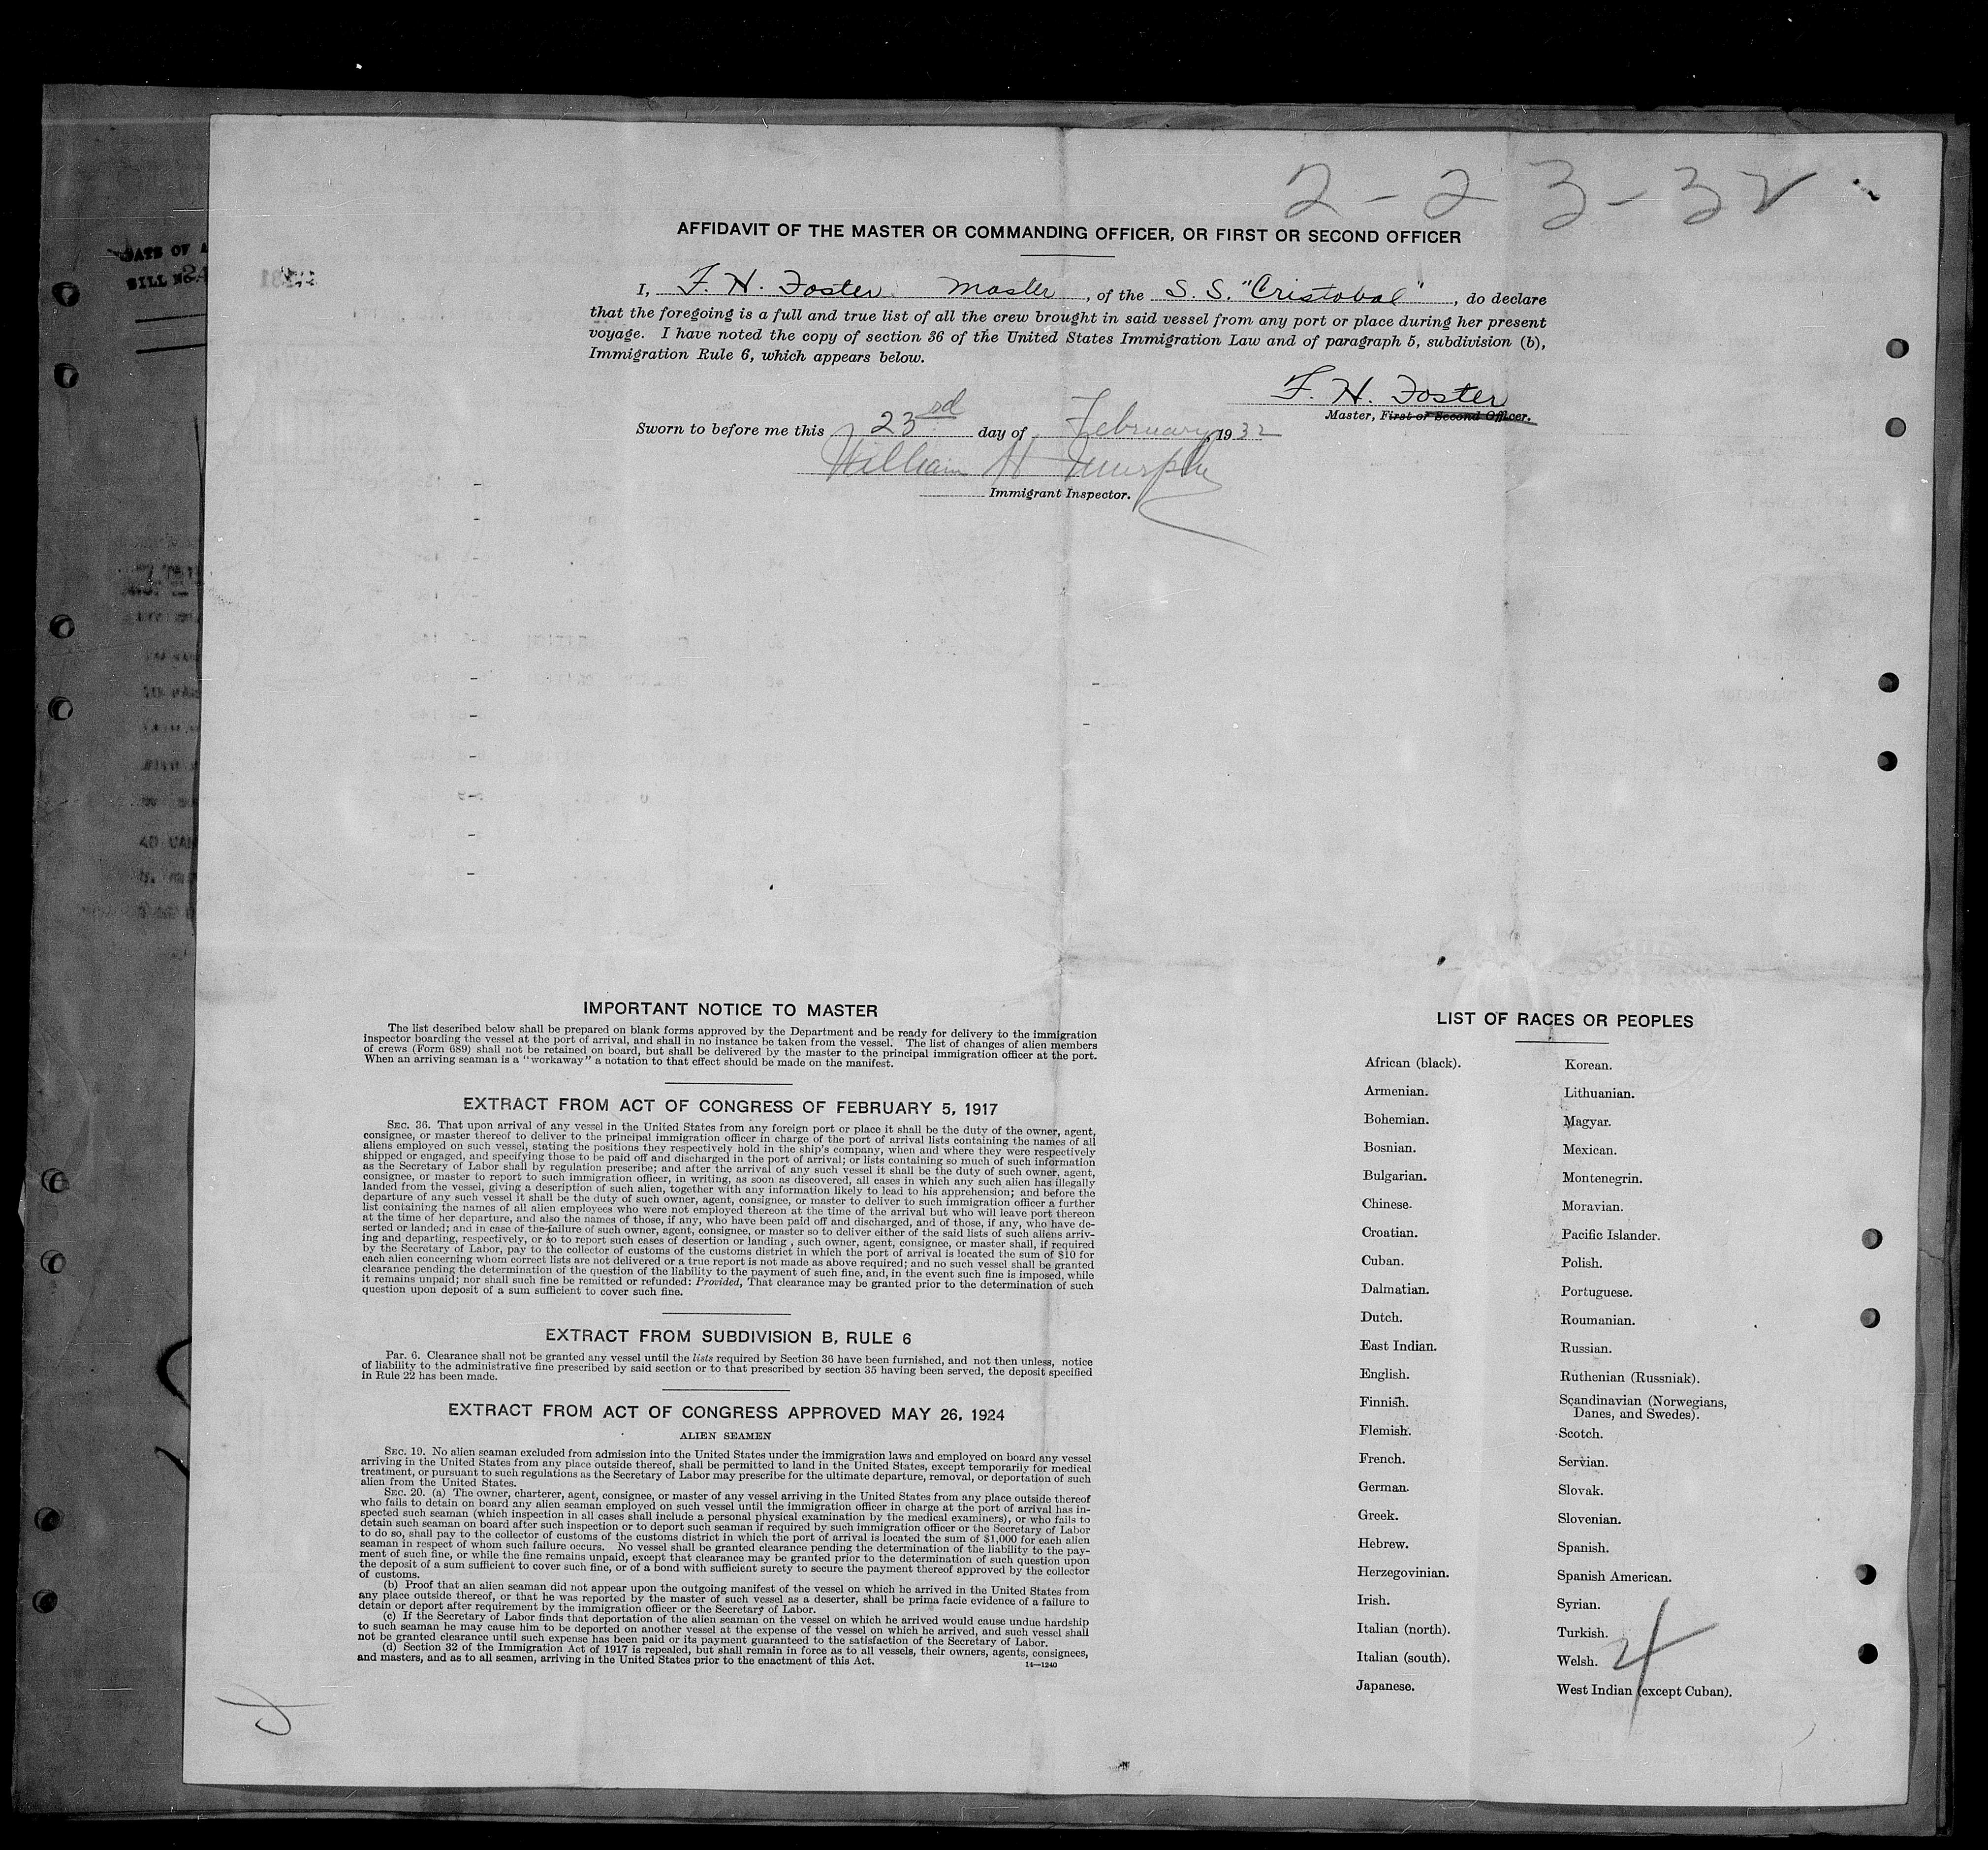 2-23-32
AFFIDAVIT OF THE MASTER OR COMMANDING OFFICER, OR FIRST OR SECOND OFFICER
I, F. H. Foster Master, of the S. S. "Cristobal", do declare
that the foregoing is a full and true list of all the crew brought in said vessel from any port or place during her present
voyage. I have noted the copy of section 36 of the United States Immigration Law and of paragraph 5, subdivision (b),
Immigration Rule 6, which appears below.
F. H. Foster
Master, First or Second Officer.
Sworn to before me this 23rd day of February, 1932
William H Murphy
Immigrant Inspector.
DATE OF A
BILL NO
IMPORTANT NOTICE TO MASTER
The list described below shall be prepared on blank forms approved by the Department and be ready for delivery to the immigration
inspector boarding the vessel at the port of arrival, and shall in no instance be taken from the vessel. The list of changes of alien members
of crews (Form 689) shall not be retained on board, but shall be delivered by the master to the principal immigration officer at the port.
When an arriving seaman is a "workaway" a notation to that effect should be made on the manifest.
EXTRACT FROM ACT OF CONGRESS OF FEBRUARY 5, 1917
SEC. 36. That upon arrival of any vessel in the United States from any foreign port or place it shall be the duty of the owner, agent,
consignee, or master thereof to deliver to the principal immigration officer in charge of the port of arrival lists containing the names of all
aliens employed on such vessel, stating the positions they respectively hold in the ship's company, when and where they were respectively
shipped or engaged, and specifying those to be paid off and discharged in the port of arrival; or lists containing so much of such information
as the Secretary of Labor shall by regulation prescribe; and after the arrival of any such vessel it shall be the duty of such owner, agent,
consignee, or master to report to such immigration officer, in writing, as soon as discovered, all cases in which any such alien has illegally
landed from the vessel, giving a description of such alien, together with any information likely to lead to his apprehension; and before the
departure of any such vessel it shall be the duty of such owner, agent, consignee, or master to deliver to such immigration officer a further
list containing the names of all alien employees who were not employed thereon at the time of the arrival but who will leave port thereon
at the time of her departure, and also the names of those, if any, who have been paid off and discharged, and of those, if any, who have de-
serted or landed; and in case of the failure of such owner, agent, consignee, or master so to deliver either of the said lists of such aliens arriv-
ing and departing, respectively, or so to report such cases of desertion or landing , such owner, agent, consignee, or master shall, if required
by the Secretary of Labor, pay to the collector of customs of the customs district in which the port of arrival is located the sum of $10 for
each alien concerning whom correct lists are not delivered or a true report is not made as above required; and no such vessel shall be granted
clearance pending the determination of the question of the liability to the payment of such fine, and, in the event such fine is imposed, while
it remains unpaid; nor shall such fine be remitted or refunded: Provided, That clearance may be granted prior to the determination of such
question upon deposit of a sum sufficient to cover such fine.
EXTRACT FROM SUBDIVISION B, RULE 6
Par. 6. Clearance shall not be granted any vessel until the lists required by Section 36 have been furnished, and not then unless, notice
of liability to the administrative fine prescribed by said section or to that prescribed by section 35 having been served, the deposit specified
in Rule 22 has been made.
EXTRACT FROM ACT OF CONGRESS APPROVED MAY 26, 1924
ALIEN SEAMEN
SEC. 19. No alien seaman excluded from admission into the United States under the immigration laws and employed on board any vessel
arriving in the United States from any place outside thereof, shall be permitted to land in the United States, except temporarily for medical
treatment, or pursuant to such regulations as the Secretary of Labor may prescribe for the ultimate departure, removal, or deportation of such
alien from the United States.
SEC. 20. (a) The owner, charterer, agent, consignee, or master of any vessel arriving in the United States from any place outside thereof
who fails to detain on board any alien seaman employed on such vessel until the immigration officer in charge at the port of arrival has in-
spected such seaman (which inspection in all cases shall include a personal physical examination by the medical examiners), or who fails to
detain such seaman on board after such inspection or to deport such seaman if required by such immigration officer or the Secretary of Labor
to do so, shall pay to the collector of customs of the customs district in which the port of arrival is located the sum of $1,000 for each alien
seaman in respect of whom such failure occurs. No vessel shall be granted clearance pending the determination of the liability to the pay-
ment of such fine, or while the fine remains unpaid, except that clearance may be granted prior to the determination of such question upon
the deposit of a sum sufficient to cover such fine, or of a bond with sufficient surety to secure the payment thereof approved by the collector
of customs.
(b) Proof that an alien seaman did not appear upon the outgoing manifest of the vessel on which he arrived in the United States from
any place outside thereof, or that he was reported by the master of such vessel as a deserter, shall be prima facie evidence of a failure to
detain or deport after requirement by the immigration officer or the Secretary of Labor.
(c) If the Secretary of Labor finds that deportation of the alien seaman on the vessel on which he arrived would cause undue hardship
to such seaman he may cause him to be deported on another vessel at the expense of the vessel on which he arrived, and such vessel shall
not be granted clearance until such expense has been paid or its payment guaranteed to the satisfaction of the Secretary of Labor.
(d) Section 32 of the Immigration Act of 1917 is repealed, but shall remain in force as to all vessels, their owners, agents, consignees,
and masters, and as to all seamen, arriving in the United States prior to the enactment of this Act.
14—1240
LIST OF RACES OR PEOPLES
African (black).
Armenian.
Bohemian.
Bosnian.
Bulgarian.
Chinese.
Croatian.
Cuban.
Dalmatian.
Dutch.
East Indian.
English.
Finnish.
Flemish.
French.
German.
Greek.
Hebrew.
Herzegovinian.
Irish.
Italian (north).
Italian (south).
Japanese.
Korean.
Lithuanian.
Magyar.
Mexican.
Montenegrin.
Moravian.
Pacific Islander.
Polish.
Portuguese.
Roumanian.
Russian.
Ruthenian (Russniak).
Scandinavian (Norwegians,
Danes, and Swedes).
Scotch.
Servian.
Slovak.
Slovenian.
Spanish.
Spanish American.
Syrian.
Turkish.
Welsh.
West Indian (except Cuban).
4